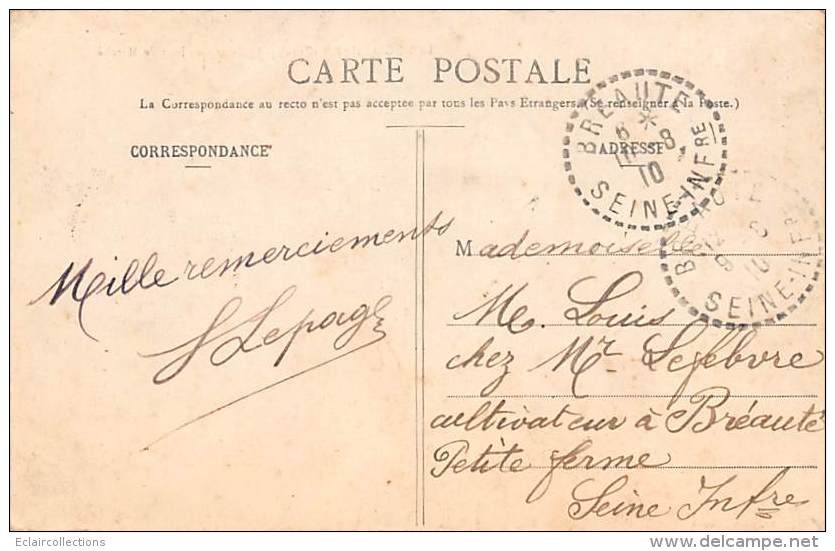 CARTE POSTALE
La Correspondance au recto n'est pas acceptée par tous les Pays Étrangers. (Se renseigner à la Poste.)
CORRESPONDANCE
ADRESSE
BRÉAUTÉ
8
10
SEINE-INFRE
SEINE-INFRE
Mille remerciements
Lepage
Mademoiselle
Me. Louis
chez Mr. Lefebvre
cultivateur à Bréauté
Petite ferme
Seine Infre
Eclaircollections
delcampe.net